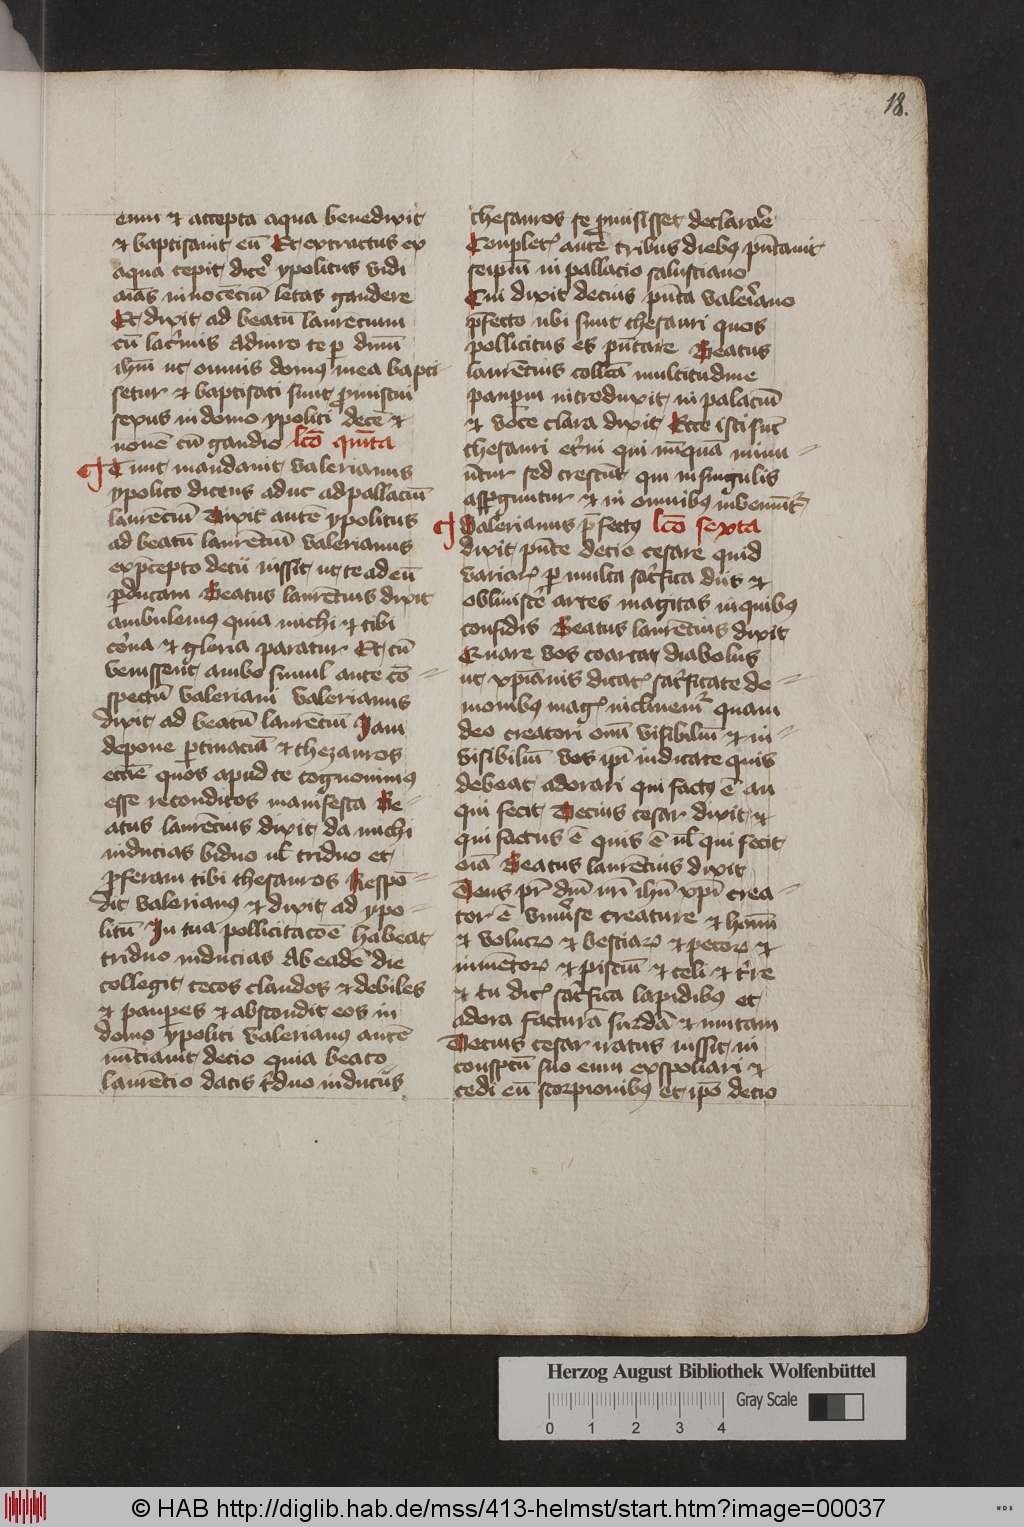 18.
eum ⁊ accepta aqua benedixit
⁊ baptisauit eū Et extractus ex
aqua cepit dicē ypolitus vidi
aīas innocēciū letas gaudere
Et dixit ad beatū laurecium
cū lac̄mis Adiuro te ꝑ dnm̄
ihm̄ ut omnis domꝰ mea bapti
setur ⁊ baptisati sunt ꝓmiscui
sexus in domo ypoliti decē ⁊
nouē cū gaudio lcō qnīta
Tunc mandauit valerianus
ypolito dicens aduc ad pallaciū
laurēciū Dixit autē ypolitus
ad beatū laurēciū valerianus
ex p̄cepto decii iussit ut te ad eū
ꝑducam Beatus laurēcius dixit
ambulemꝰ quia michi ⁊ tibi
cor̄na ⁊ gloria paratur Et cū
venissent ambo simul ante cō
spectū valeriani valerianus
dixit ad beatū laurēciū Iam
depone ꝑtinaciā ⁊ thezauros
eccīe quos apud te cognouimꝰ
esse reconditos manifesta Be
atus laurēcius dixit da michi
inducias biduo ul̄ triduo et
ꝓferam tibi thesauros Respō
dit valerianꝰ ⁊ dixit ad ypo
litū In tua pollicitacōē habeat
triduo inducias Ab eadē die
collegit cecos claudos ⁊ debiles
⁊ paupes ⁊ abscondit eos in
domo ypoliti valerianꝰ autē
nūciauit decio quia beato
laurēcio datis t̄duo inducijs
thesauros se ꝓmisisset declarar̄e
Conplet̄ autē tribus diebꝰ pn̄tauit
seipm̄ in pallacio salustiano
Cui dixit decius pn̄ta valer̄iano
p̄fecto ubi sunt thesauri quos
pollicitus es pn̄tare Beatus
laurēcius collc̄a multitudine
paupm̄ introduxit in palaciū
⁊ voce clara dixit Ecce isti sūt
thesauri et̄ni qui nūquā minu
ūtur sed crescūt qui in singulis
aspguntur ⁊ in omnibꝰ inveniūt̄
Valerianus p̄fectꝰ lcō sexta
dixit pn̄te decio cesare quid
variar̄ ꝑ multa sac̄fica diis ⁊
obliuiscē artes magicas in quibꝰ
confidis Beatus laurēcius dixit
Quare vos coartat diabolus
ut xp̄ianis dicat̄ sac̄ficate de
monibꝰ maḡ inclinem̄ quam
deo creatori om̄ visibiliū ⁊ in
visibiliū vos ip̄i iudicate quis
debeat adorari qui factꝰ ē an
qui fecit Decius cesar dixit ⁊
qui factus ē quis ē ul̄ qui fecit
oīa Beatus laurēcius dixit
Deus pr̄ dn̄i nr̄i ihū xp̄i crea
tor ē vniūse creature ⁊ hoīnū
⁊ volucrꝝ ⁊ bestiarꝝ ⁊ pecorꝝ ⁊
iumētorꝝ ⁊ pisciū ⁊ celi ⁊ t̄re
⁊ tu dic̄ sac̄fica lapidibꝰ et
adora facturā surdā ⁊ mutam
Decius cesar iratus iussit in
conspc̄tū suo eum exspoliari ⁊
cedi eū scorpionibꝰ et ip̄o decio
Herzog August Bibliothek Wolfenbüttel
Gray Scale
0 1 2 3 4
© HAB http://diglib.hab.de/mss/413-helmst/start.htm?image=00037
WDB